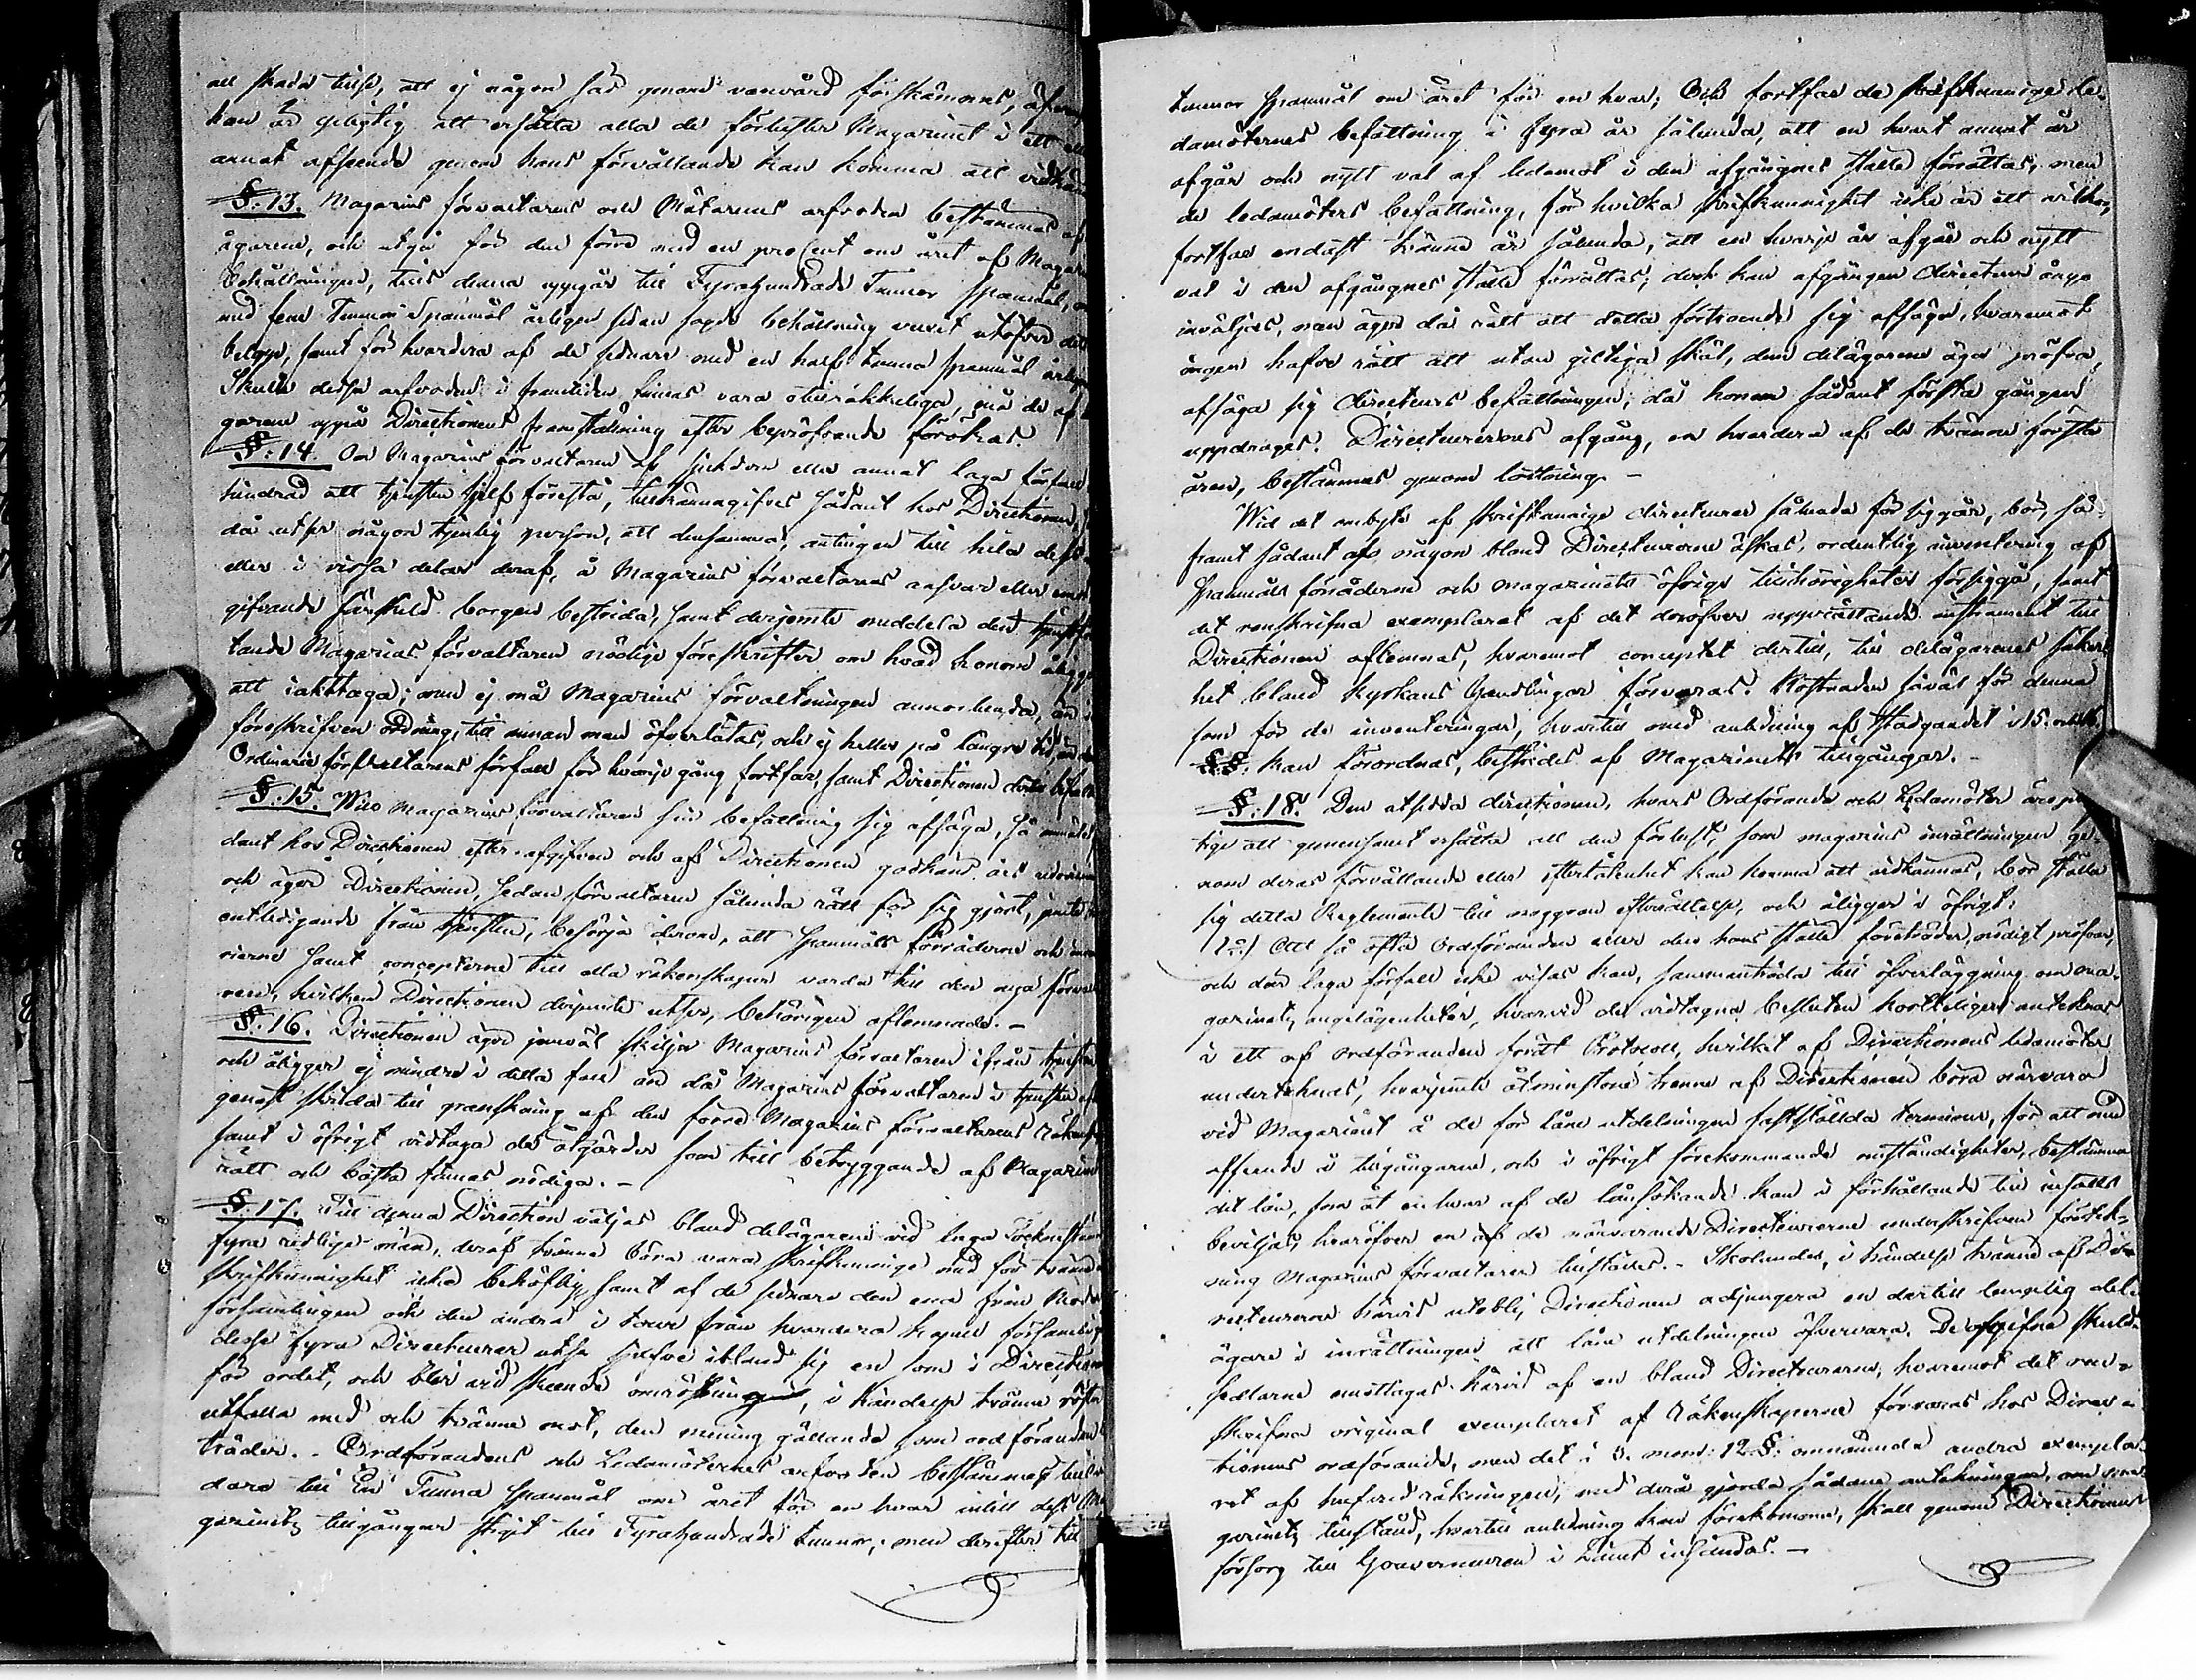 all skada tillse, att ej någon säd genom vanvård förskämmes, äfven
han är pligtig att ersätta alla de förluster Magazinet i ett
annat afseende genom hans förvållande kan komma att
§. 13. Magazins förvaltarens och Mätarens arfvoden bestämmas af
ägarene, och utgå för den förre med en procent om året af
behållningen, tills denna uppgår till Fyrahundrade Tunnor Spanmål,
med fem Tunnor Spanmål årligen sedan sagde behållning vuxit utöfver
belopp, samt för hvardera af de sednare med en half tunna spanmål
Skulle dessa arfvoden i framtiden finnas vara otillräckeliga, må de af
garene uppå Directionens framställning efter bepröfvande förökas.
§. 14. Om Magazins förvaltaren af sjukdom eller annat laga förfall
hindrad att tjensten sjelf förestå, tillkännagifves sådant hos Directionen,
då utser någon tjenlig person, att densamma, antingen till hela
eller i vissa delar deraf, å Magazins förvaltarens ansvar eller
gifvande särskild borgen bestrida, samt derjemte meddela den
tande Magazins förvaltaren nödige föreskrifter om hvad honom
att iakttaga; men ej må Magazins förvaltningen annorlunda, än i
föreskrifven ordning, till annan man öfverlåtas, och ej heller på längre tid, än
Ordinarie förvaltarens förfall för hvarje gång fortfar, samt Directionen
§. 15. Will Magazins förvaltaren sin befattning sig afsäga, så
dant hos Directionen efter afgifven och af Directionen godkänd års
och äger Directionen, sedan förvaltaren sålunda rätt för sig gjort, jemte
entledigande från tjensten, besörja derom, att spanmåls förråderne och
rierne samt concepterne till alla räkenskaper varda till den nya
ren, hvilken Directionen derjemte utser, behörigen aflemnade. –
§. 16. Directionen äger jemväl skilja Magazins förvaltaren ifrån tjensten
och åligger ej mindre i detta fall än då Magazins förvaltaren i tjensten
genast skrida till granskning af den förre Magazins förvaltarens
samt i öfrigt vidtaga de åtgärder som till betryggande af
rätt och bästa finnas nödiga. –
§. 17. Till denna Direction väljas bland delägarene vid laga Sockenstämma
fyra redlige män, deraf tvänne böra vara skrifkunnige men för tvänne
skrifkunnighet icke behöflig, samt af de sednare den ena från
församlingen och den andra i tour från hvardera kapell
desse fyra Directeurer utse sjelfve ibland sig en som i Directionen
för ordet, och blir vid skeende omröstningar, i händelse tvänne röster
utfalla med och tvänne mot, den mening gällande som ordföranden
träder. – Ordförandens och Ledamöternes arfvoden bestämmas
dare till En Tunna spanmål om året för en hvar intill dess
gazinets tillgångar stigit till Fyrahundrade tunnor, men derefter till
tunnor spanmål om året för en hvar; Och fortfar de skrifkunnige Le-
damöternes befattning i fyra år sålunda, att en hvart annat år
afgår och nytt val af ledamot i den afgångnes ställe förrättas, men
de ledamöters befattning, för hvilka skrifkunnighet icke är ett vilkor,
fortfar endast tvänne år sålunda, att en hvarje år afgår och nytt
val i den afgångnes ställe förrättas; dock kan afgången Directeur ånyo
inväljas, men äger då rätt att detta förtroende sig afsäga, hvaremot
ingen hafve rätt att utan giltiga skäl, dem delägarene äga pröfva,
afsäga sig Directeurs befattningen, då honom sådant första gången
uppdrages. Directeurernes afgång, en hvardera af de tvänne första
åren, bestämmes genom lottning. –
Wid det ombyte af skrifkunnige Directeurer sålunda för sig går, bör, så-
framt sådant af någon bland Directeurerne äskas, ordentlig inventering af
spanmåls förråderne och magazinets öfrige tillhörigheter försiggå, samt
det renskrifna exemplaret af det deröfver upprättande instrument till
Directionen aflemnas, hvaremot conceptet dertill, till delägarenes säker-
het bland Kyrkans handlingar förvaras. Kostnaden såväl för denna
som för de inventeringar, hvartill med anledning af stadgandet i 15. och 16.
§§. kan förordnas, bestrides af Magazinets tillgångar. –
§. 18. Den utsedda directionen, hvars Ordförande och Ledamöter äro
tige att gemensamt ersätta all den förlust, som magazins inrättningen ge-
nom deras förvållande eller efterlåtenhet kan komma att vidkännas, bör ställa
sig detta Reglemente till noggrann efterrättelse, och åligger i öfrigt:
1:o) Att så ofta Ordföranden eller den hans ställe företräder, nödigt pröfvar,
och där laga förfall icke visas kan, sammanträda till öfverläggning om ma-
gazinets angelägenheter, hvarvid de vidtagne besluten korteligen antecknas
i ett af ordföranden fördt Protocoll, hvilket af Directionens ledamöter
undertecknas, hvarjemte åtminstone trenne af Directionen böra närvara
vid Magazinet å de för låne utdelningen fastställda terminer, för att med
afseende å tillgångarne, och i öfrigt förekommande omständigheter, bestämma
det lån, som åt en hvar af de lånsökande kan i förhållande till insatts
beviljas, hvaröfver en af de närvarande Directeurerne underskrifven förteck-
ning Magazins förvaltaren tillställes. – Skolandes, i händelse tvänne af Di-
recteurerne härvid uteblij, Directionen adjungera en dertill lämpelig del-
ägare i inrättningen att låne utdelningen öfvervara. De afgifna skuld-
sedlarne emottagas härvid af en bland Directeurerne, hvaremot det ren-
skrifna original exemplaret af räkenskaperne förvaras hos Direc-
tionens ordförande, men det i 3. mom: 12. §. omnämnda andra exempla-
ret af hufvud räkningen, med derå gjorde sådane anteckningar, om ma-
gazinets tillstånd, hvartill anledning kan förekomma, skall genom Directionens
försorg till Gouverneuren i Länet insändas. –